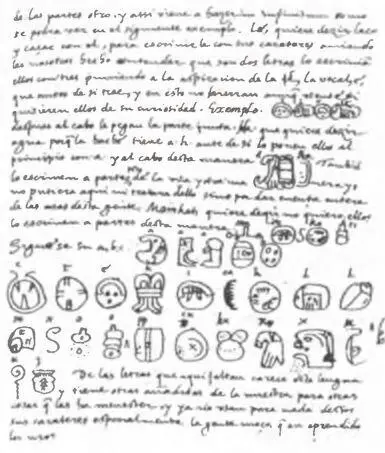 de las partes otro, y assi viene a hazer in infinitum como
se podra ver en el siguiente exemplo. Lé, quiere dezir laço
y caçar con el, para escrivirle con sus carateres aviendo
les nosotros hecho entender que son dos letras lo escrivian
ellos con tres puniendo a la aspiracion de la l, la vocal e,
que antes de si trae, y en esto no hierran
quisieren ellos de su curiosidad. Exemplo.
despues al cabo le pegan la parte junta. Ha que quiere dezir
agua porq̃ la hache tiene a. h. ante de si lo ponen ellos al
principio con a y al cabo desta manera Tambiẽ
lo escriven a partes de la una y otra manera yo
no pusiera aqui ni tratara dello sino por dar cuenta entera
de las cosas desta gente. Mainkati quiere dezir no quiero, ellos
lo escriven a partes desta manera
Siguese su a. b. c.
De las letras que aqui faltan carece esta lengua
y tiene otras añadidas de la nuestra para otras
cosas q̃ las ha menester, y ya no usan para nada destos
sus carateres especialmente la gente moça q̃ an aprendido
los nros